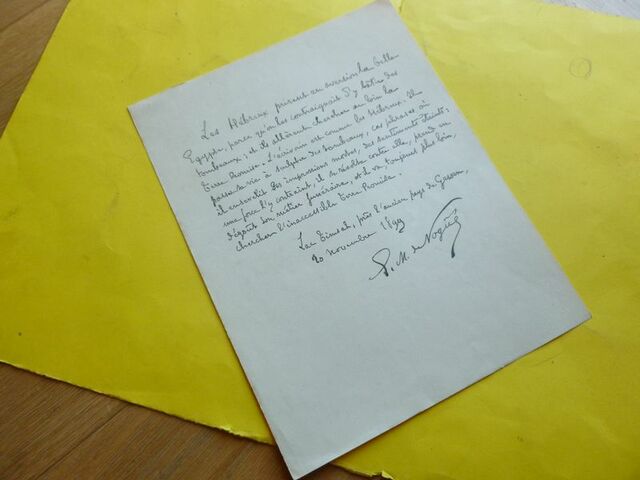 Les Hébreux prirent en aversion la belle
Egypte, parce qu'on les contraignait d'y bâtir des
tombeaux; et ils allèrent chercher au loin la
terre Promise. L'écrivain est comme les Hébreux. Il
passe sa vie à sculpter des tombeaux, ces phrases où
il ensevelit des impressions mortes, des sentiments éteints;
une force l'y contraint, il se révolte contre elle, prend en
dégoût son métier funéraire, et il va, toujours plus loin,
chercher l'inaccessible terre Promise.
Lac Timsah, près l'ancien pays de Gessen,
20 novembre 18
E. M. de Vogüé